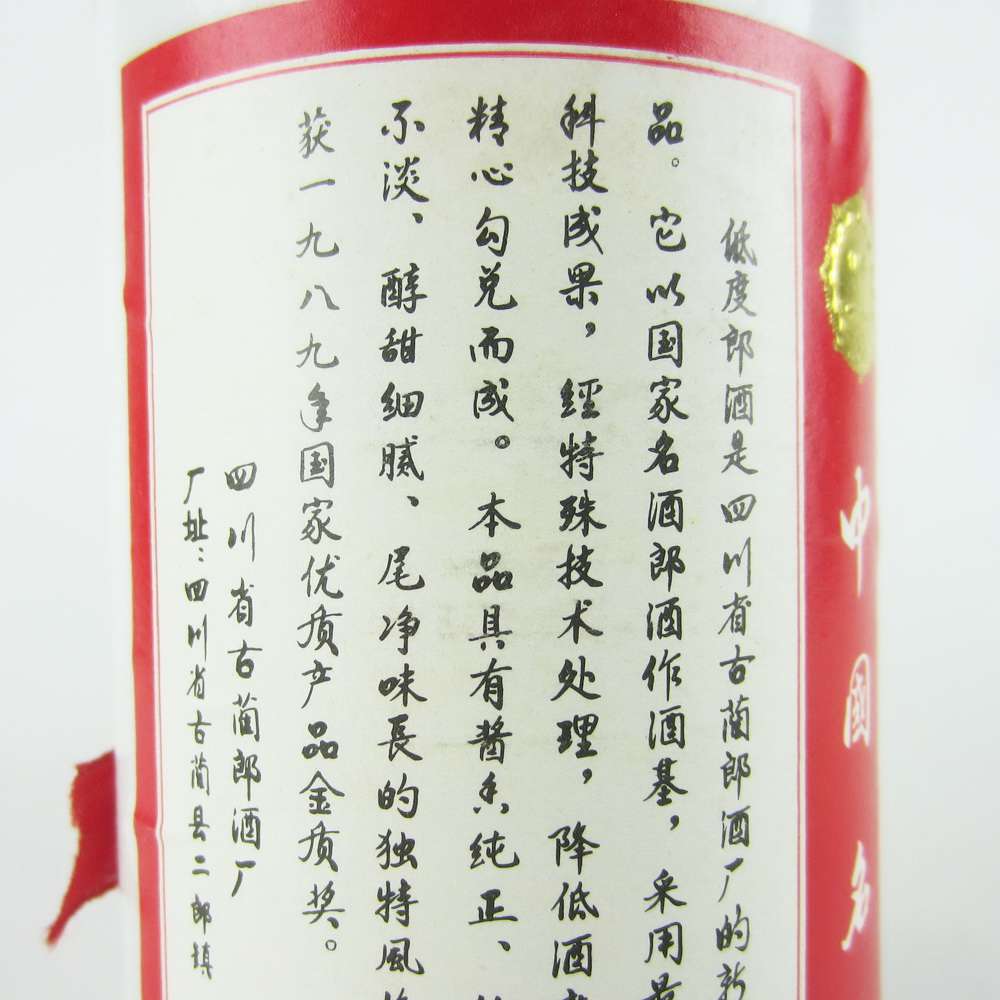 中國名
低度郎酒是四川省古蔺郎酒厂的新
品。它以国家名酒郎酒作酒基，采用最
科技成果，經特殊技术处理，降低酒
精心勾兑而成。本品具有醬香纯正、
不淡、醇甜细腻、尾净味長的独特風
获一九八九年国家优质产品金质奖。
四川省古蔺郎酒厂
厂址：四川省古蔺县二郎镇